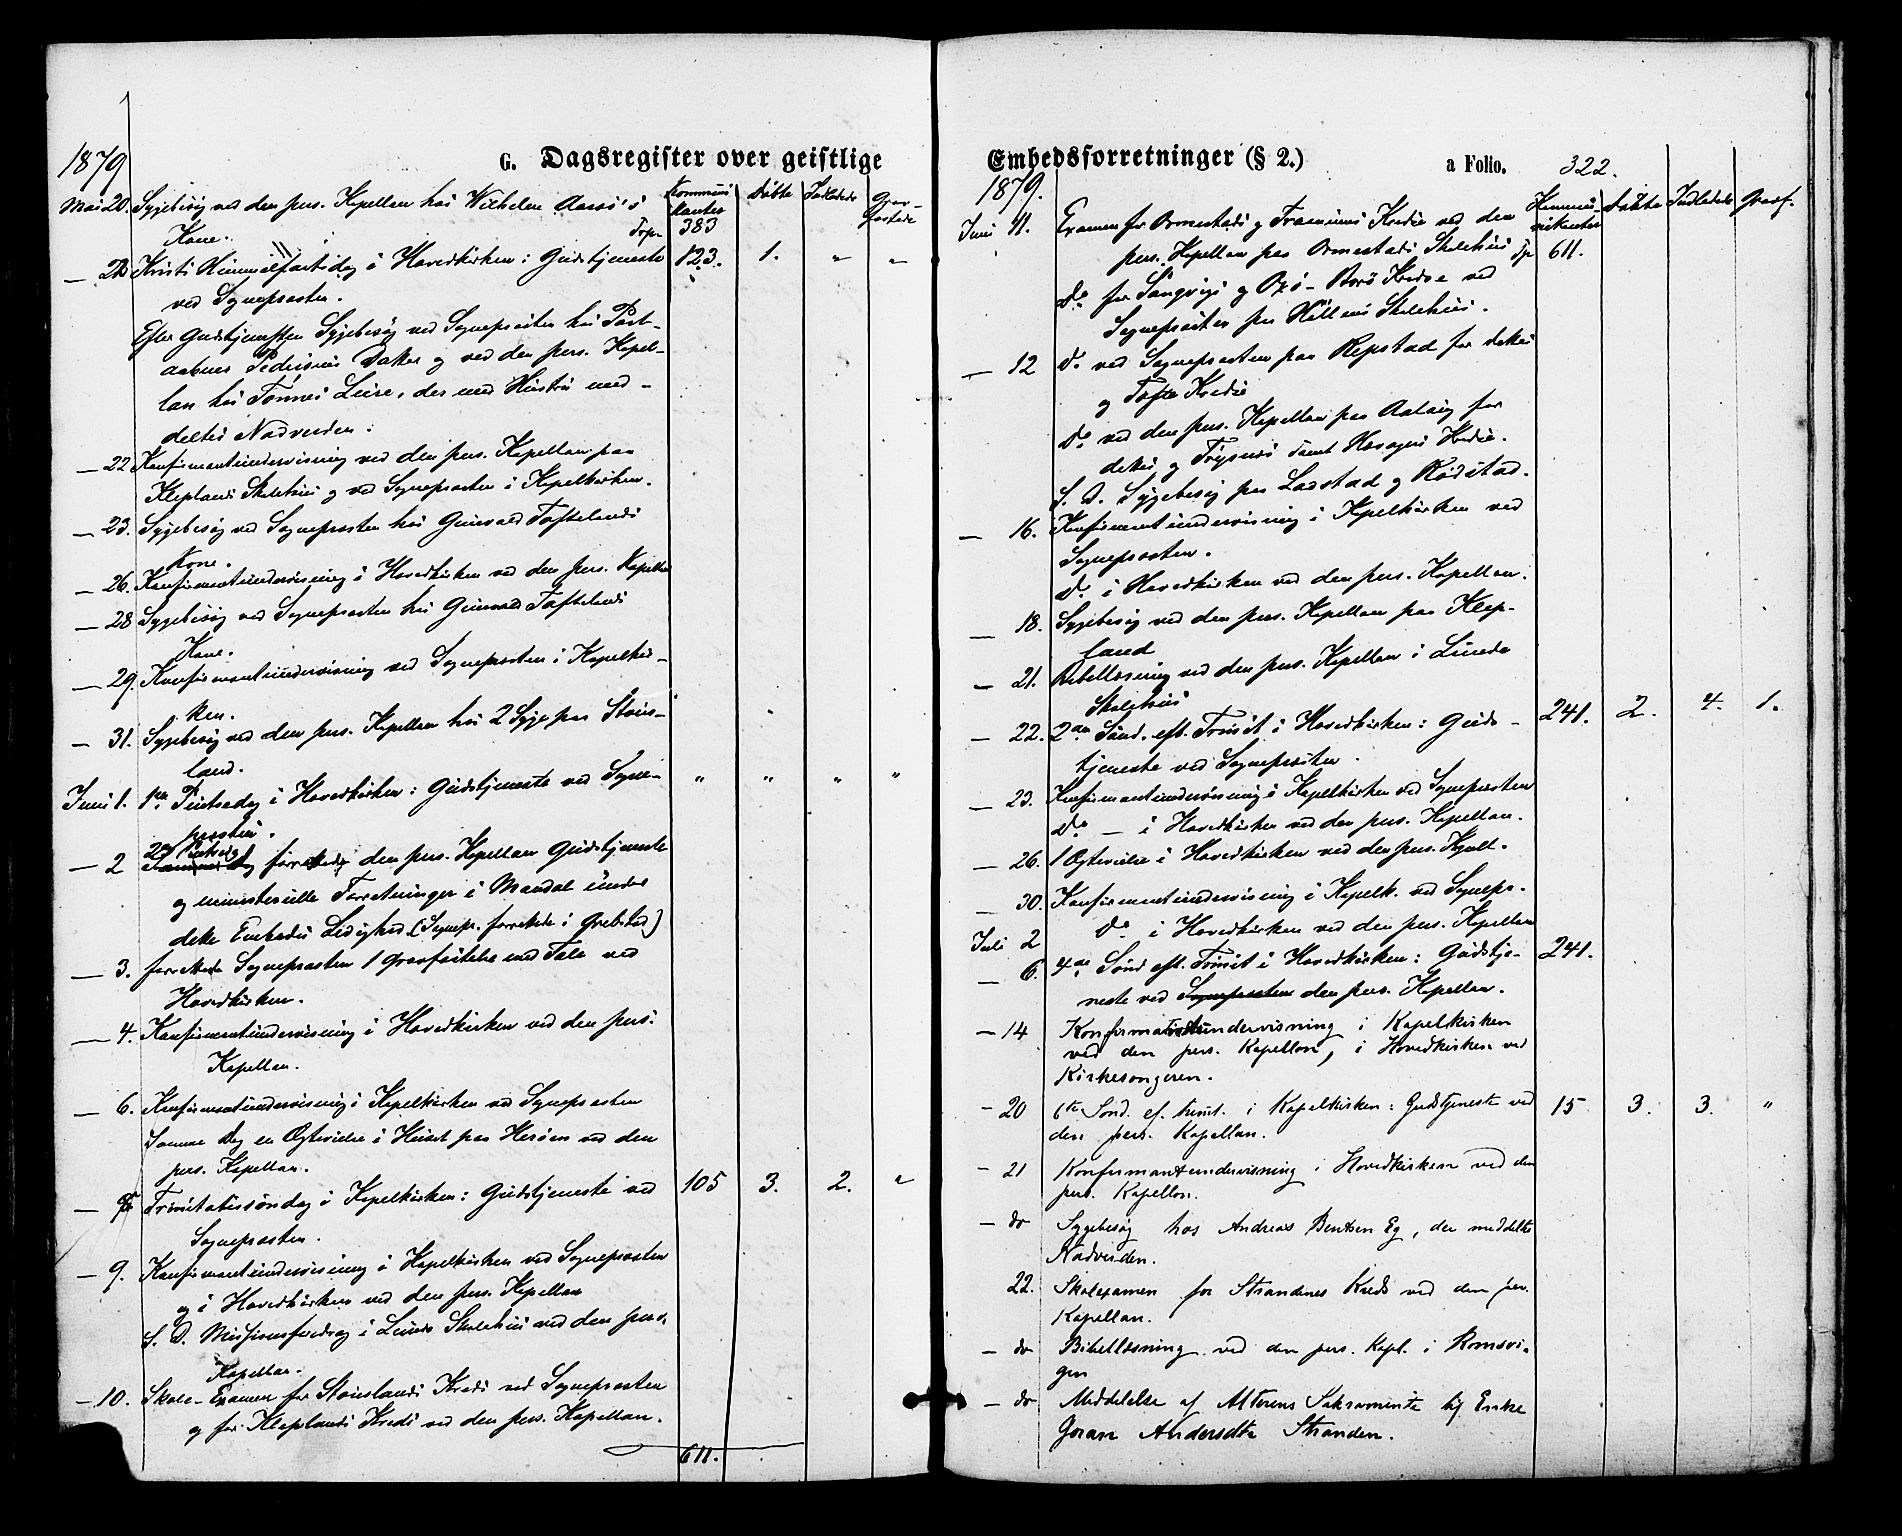 G. Dagsregister over geistlige
1879
Kommuni kanter Døbte Indledede Grav-fæstede
Mai 20. Sygebesøg ved den pers. Kapellan hos Wilhelm Aarø's
Kone. Trpr 383
— 22 Kristi Himmelfartsdag i Hovedkirken: Gudstjeneste 123. 1. " "
ved Sognepræsten.
Efter Gudstjenesten Sygebesøg ved Sognepræsten hos Post-
aabner Pedersens Enke og ved den pers. Kapel-
lan hos Tønnes Leire, der med Hustru med-
deltes Nadverden.
— 22 Konfirmantundervisning ved den pers. Kapellan paa
Kleplands Skolehus og ved Sognepræsten i Kapelkirken.
— 23. Sygebesøg ved Sognepræsten hos Gunvald Toftelands
Kone.
— 26. Konfirmantundervisning i Hovedkirken ved den pers. Kapellan
— 28 Sygebesøg ved Sognepræsten hos Gunvald Toftelands
Kone.
— 29. Konfirmantundervisning ved Sognepræsten i Kapelkir-
ken.
— 31. Sygebesøg ved den pers. Kapellan hos 2 Syge paa Støus-
land.
Juni 1. 1ste Pintsedag i Hovedkirken: Gudstjeneste ved Sogne- " " " "
præsten.
— 2 2den Pintsedag forrettede den pers. Kapellan Gudstjeneste
og ministerielle Forretninger i Mandal under
dette Embedes Ledighed (Sognepr. forrettede i Grebstad)
— 3. forrettede Sognepræsten 1 Gravfæstelse med Tale ved
Hovedkirken.
— 4. Konfirmantundervisning i Hovedkirken ved den pers.
Kapellan.
— 6. Konfirmantundervisning i Kapelkirken ved Sognepræsten
Samme Dag en Ægtevielse i Huset paa Herøen ved den
pers. Kapellan.
— 8 Trinitatissøndag i Kapelkirken: Gudstjeneste ved 105 3. 2. "
Sognepræsten.
— 9. Konfirmantundervisning i Kapelkirken ved Sognepræsten
og i Hovedkirken ved den pers. Kapellan
S. D. Missionsforedrag i Lunde Skolehus ved den pers.
Kapellan.
— 10. Skole-Examen for Støuslands Kreds ved Sognepræsten
og for Kleplands Kreds ved den pers. Kapellan.
611.
Embedsforretninger (§ 2.) a Folio. 322.
1879.
Kommunikanter Døbte Indledede Gravf.
Juni 11. Examen for Ormestads og Kreds ved den
pers. Kapellan paa Ormestads Skolehus Tp 611.
Do for Sangvigs og Oxø-Borø Kredse ved
Sognepræsten paa Hellens Skolehus.
— 12 Do ved Sognepræsten paa Repstad for dettes
og Tofte Kredse
Do ved den pers. Kapellan paa for
dettes og samt Kredse.
S. D. Sygebesøg paa Laastad og Rødstad.
— 16. Konfirmantundervisning i Kapelkirken ved
Sognepræsten.
Do i Hovedkirken ved den pers. Kapellan.
— 18. Sygebesøg ved den pers. Kapellan paa Klep-
land
— 21. Bibellæsning ved den pers. Kapellan i Lunde
Skolehus
— 22. 2den Sønd. eft. Trinit i Hovedkirken: Guds- 241. 2. 4. 1.
tjeneste ved Sognepræsten.
— 23. Konfirmantundervisning i Kapelkirken ved Sognepræsten
Do — i Hovedkirken ved den pers. Kapellan.
— 26. 1 Ægtevielse i Hovedkirken ved den pers. Kapell.
— 30. Konfirmantundervisning i Kapelk. ved Sognepr.
Juli 2 Do i Hovedkirken ved den pers. Kapellan
6. 4de Sønd eft. Trinit i Hovedkirken: Gudstje- 241.
neste ved Sognepræsten den pers. Kapellan.
— 14 Konfirmantundervisning i Kapelkirken
ved den pers. Kapellan, i Hovedkirken ved
Kirkesangeren.
— 20 6te Sønd. ef. trinit. i Kapelkirken: Gudstjeneste ved 15 3. 3. "
den pers. Kapellan.
— 21 Konfirmantundervisning i Hovedkirken ved den
pers. Kapellan.
— do Sygebesøg hos Andreas Bentsen Eg, der meddeltes
Nadverden.
22. Skolexamen for Strandenes Kreds ved den per.
Kapellan.
— do Bibellæsning ved den pers. Kapl. i Romsvi-
gen
— do Meddelelse af Alterens Sakramente til Enke
Goran Andersdtr Stranden.